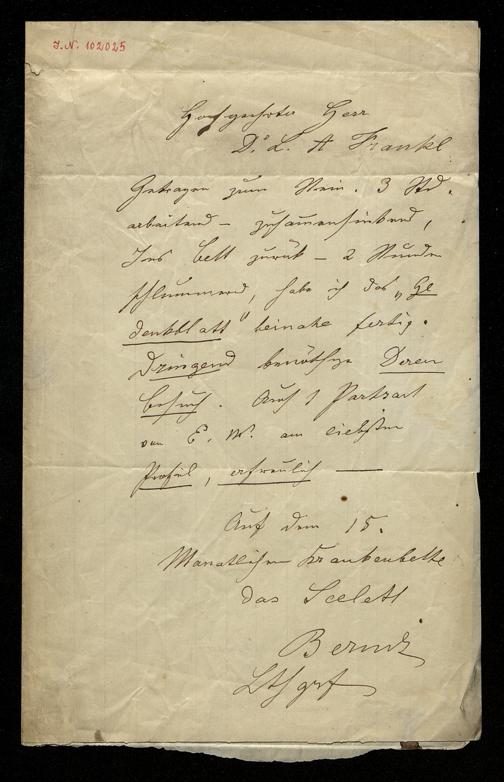 I.N. 102025
Hochgeehrter Herr
Dr. L. A Frankl
Getragen zum Stein. 3 Std.
arbeitend – zusammensinkend,
Ins Bett zurük – 2 Stunden
schlummernd, habe ich das „Ge
denkblatt" beinahe fertig.
Dringend benöthige Deren
besuch. Auch 1 Portrait
von E. W. am liebsten
Profil, erfreulich —
Auf dem 15.
Monatlichen Krankenbette
das Skelett
Lthgrf